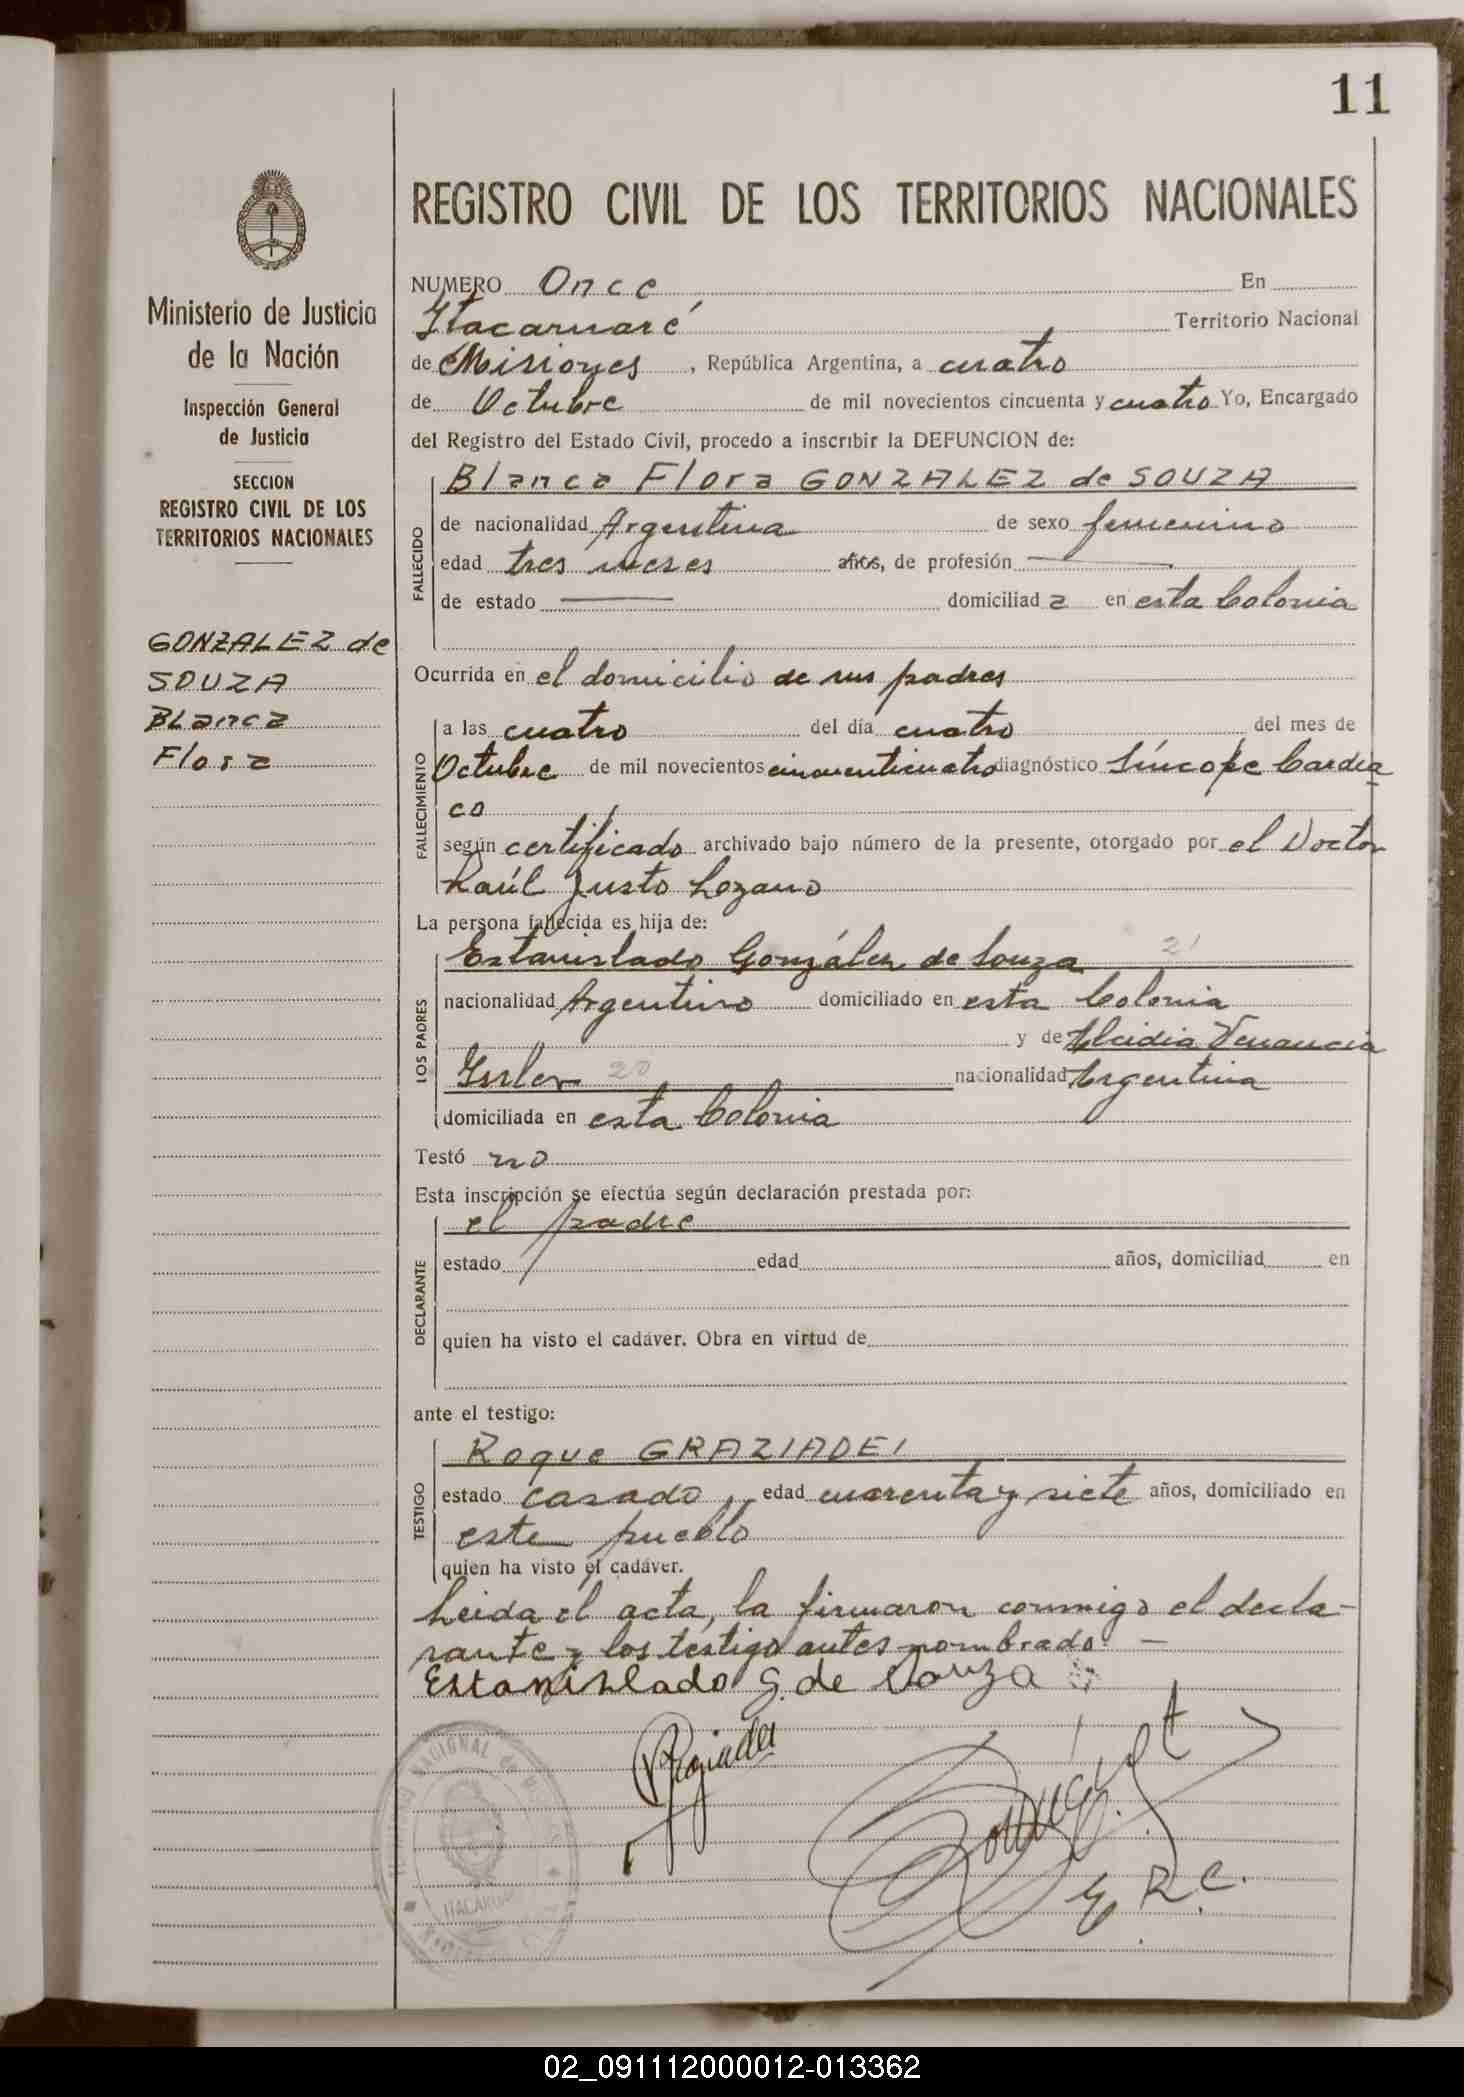 11
Ministerio de Justicia
de la Nación
Inspección General
de Justicia
SECCION
REGISTRO CIVIL DE LOS
TERRITORIOS NACIONALES
GONZALEZ de
SOUZA
BLanca
Flora
REGISTRO CIVIL DE LOS TERRITORIOS NACIONALES
NUMERO Once En
Itacaruaré Territorio Nacional
de Misiones, República Argentina, a cuatro
de Octubre de mil novecientos cincuenta y cuatro Yo, Encargado
del Registro del Estado Civil, procedo a inscribir la DEFUNCION de:
FALLECIDO
Blanca Flora GONZALEZ de SOUZA
de nacionalidad Argentina de sexo femenino
edad tres meses años, de profesión —
de estado — domiciliad a en esta Colonia
Ocurrida en el domicilio de sus padres
FALLECIMIENTO
a las cuatro del día cuatro del mes de
Octubre de mil novecientos cincuenticuatro diagnóstico Síncope Cardia
co
según certificado archivado bajo número de la presente, otorgado por el Doctor
Raúl Justo Lozano
La persona fallecida es hija de:
LOS PADRES
Estanislado González de Souza 21
nacionalidad Argentino domiciliado en esta Colonia
y de Venancia
20 nacionalidad Argentina
domiciliada en esta Colonia
Testó no
Esta inscripción se efectúa según declaración prestada por:
DECLARANTE
el padre
estado edad años, domiciliad en
quien ha visto el cadáver. Obra en virtud de
ante el testigo:
TESTIGO
Roque GRAZIADEI
estado casado, edad cuarenta y siete años, domiciliado en
este pueblo
quien ha visto el cadáver.
Leida el acta, la firmaron conmigo el decla-
rante y los testigo antes nombrado. —
Estanislado G. de Souza
E. R. C.
ITACARUARE
02_091112000012-013362